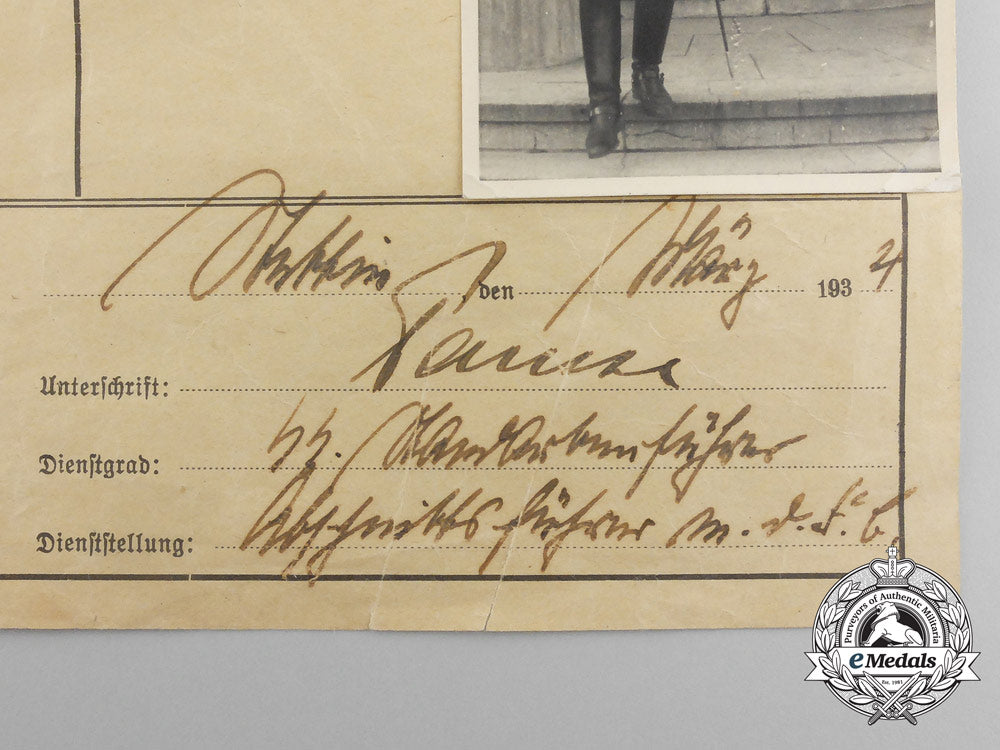 Stettin, den März 1934
Unterschrift:
Dienstgrad: SS. Standartenführer
Dienststellung: Abschnittsführer m. d. F. b.
Purveyors of Authentic Militaria
eMedals
Est. 1981